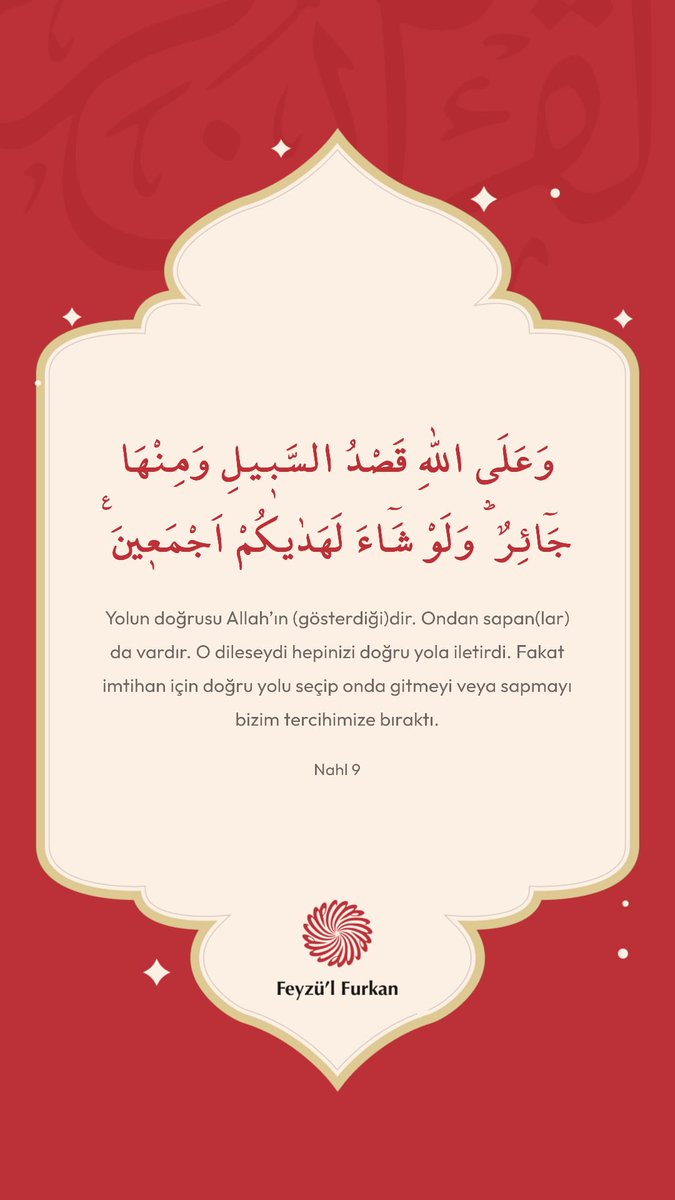 وَعَلَى اللّٰهِ قَصْدُ السَّب۪يلِ وَمِنْهَا
جَٓائِرٌۜ وَلَوْ شَٓاءَ لَهَدٰيكُمْ اَجْمَع۪ينَ۟
Yolun doğrusu Allah’ın (gösterdiği)dir. Ondan sapan(lar)
da vardır. O dileseydi hepinizi doğru yola iletirdi. Fakat
imtihan için doğru yolu seçip onda gitmeyi veya sapmayı
bizim tercihimize bıraktı.
Nahl 9
Feyzü’l Furkan